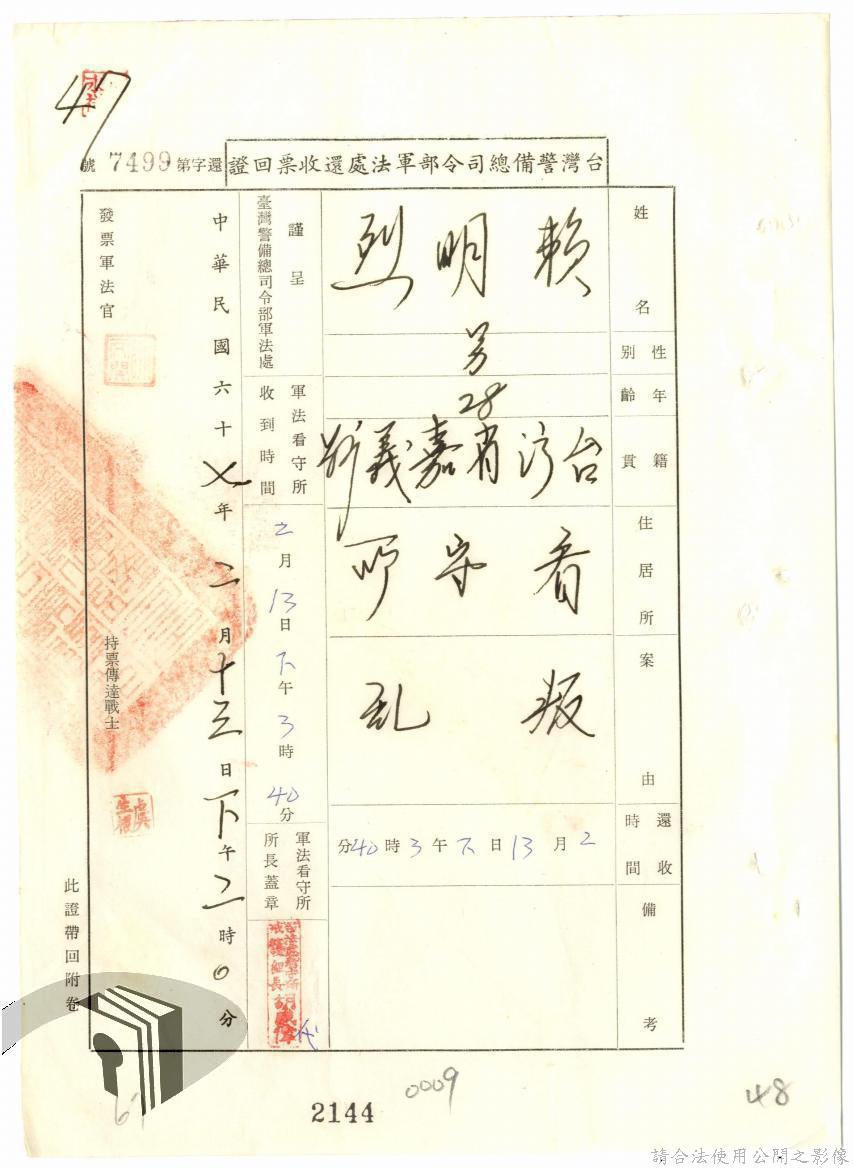 47
台灣警備總司令部軍法處還收票回證
還字第7499號
姓名
賴明烈
性別
男
年齡
28
籍貫
台湾省嘉義縣
住居所
看守所
案由
叛乱
還收時間
2月13日下午3時40分
備考
謹呈
臺灣警備總司令部軍法處
軍法看守所
收到時間
2月13日下午3時40分
軍法看守所
所長蓋章
代
中華民國六十七年二月十三日下午二時0分
發票軍法官
持票傳達戰士
此證帶回附卷
2144
0009
48
請合法使用公開之影像